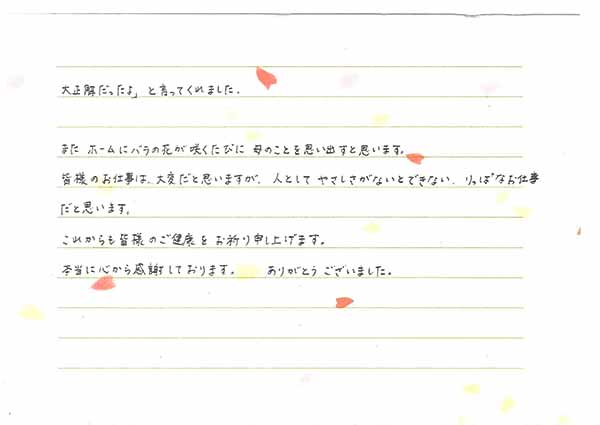 大正解だったよ」と言ってくれました。
また ホームにバラの花が咲くたびに 母のことを思い出すと思います。
皆様のお仕事は、大変だと思いますが、人として やさしさがないとできない、りっぱなお仕事
だと思います。
これからも皆様のご健康を お祈り申し上げます。
本当に心から感謝しております。 ありがとう ございました。